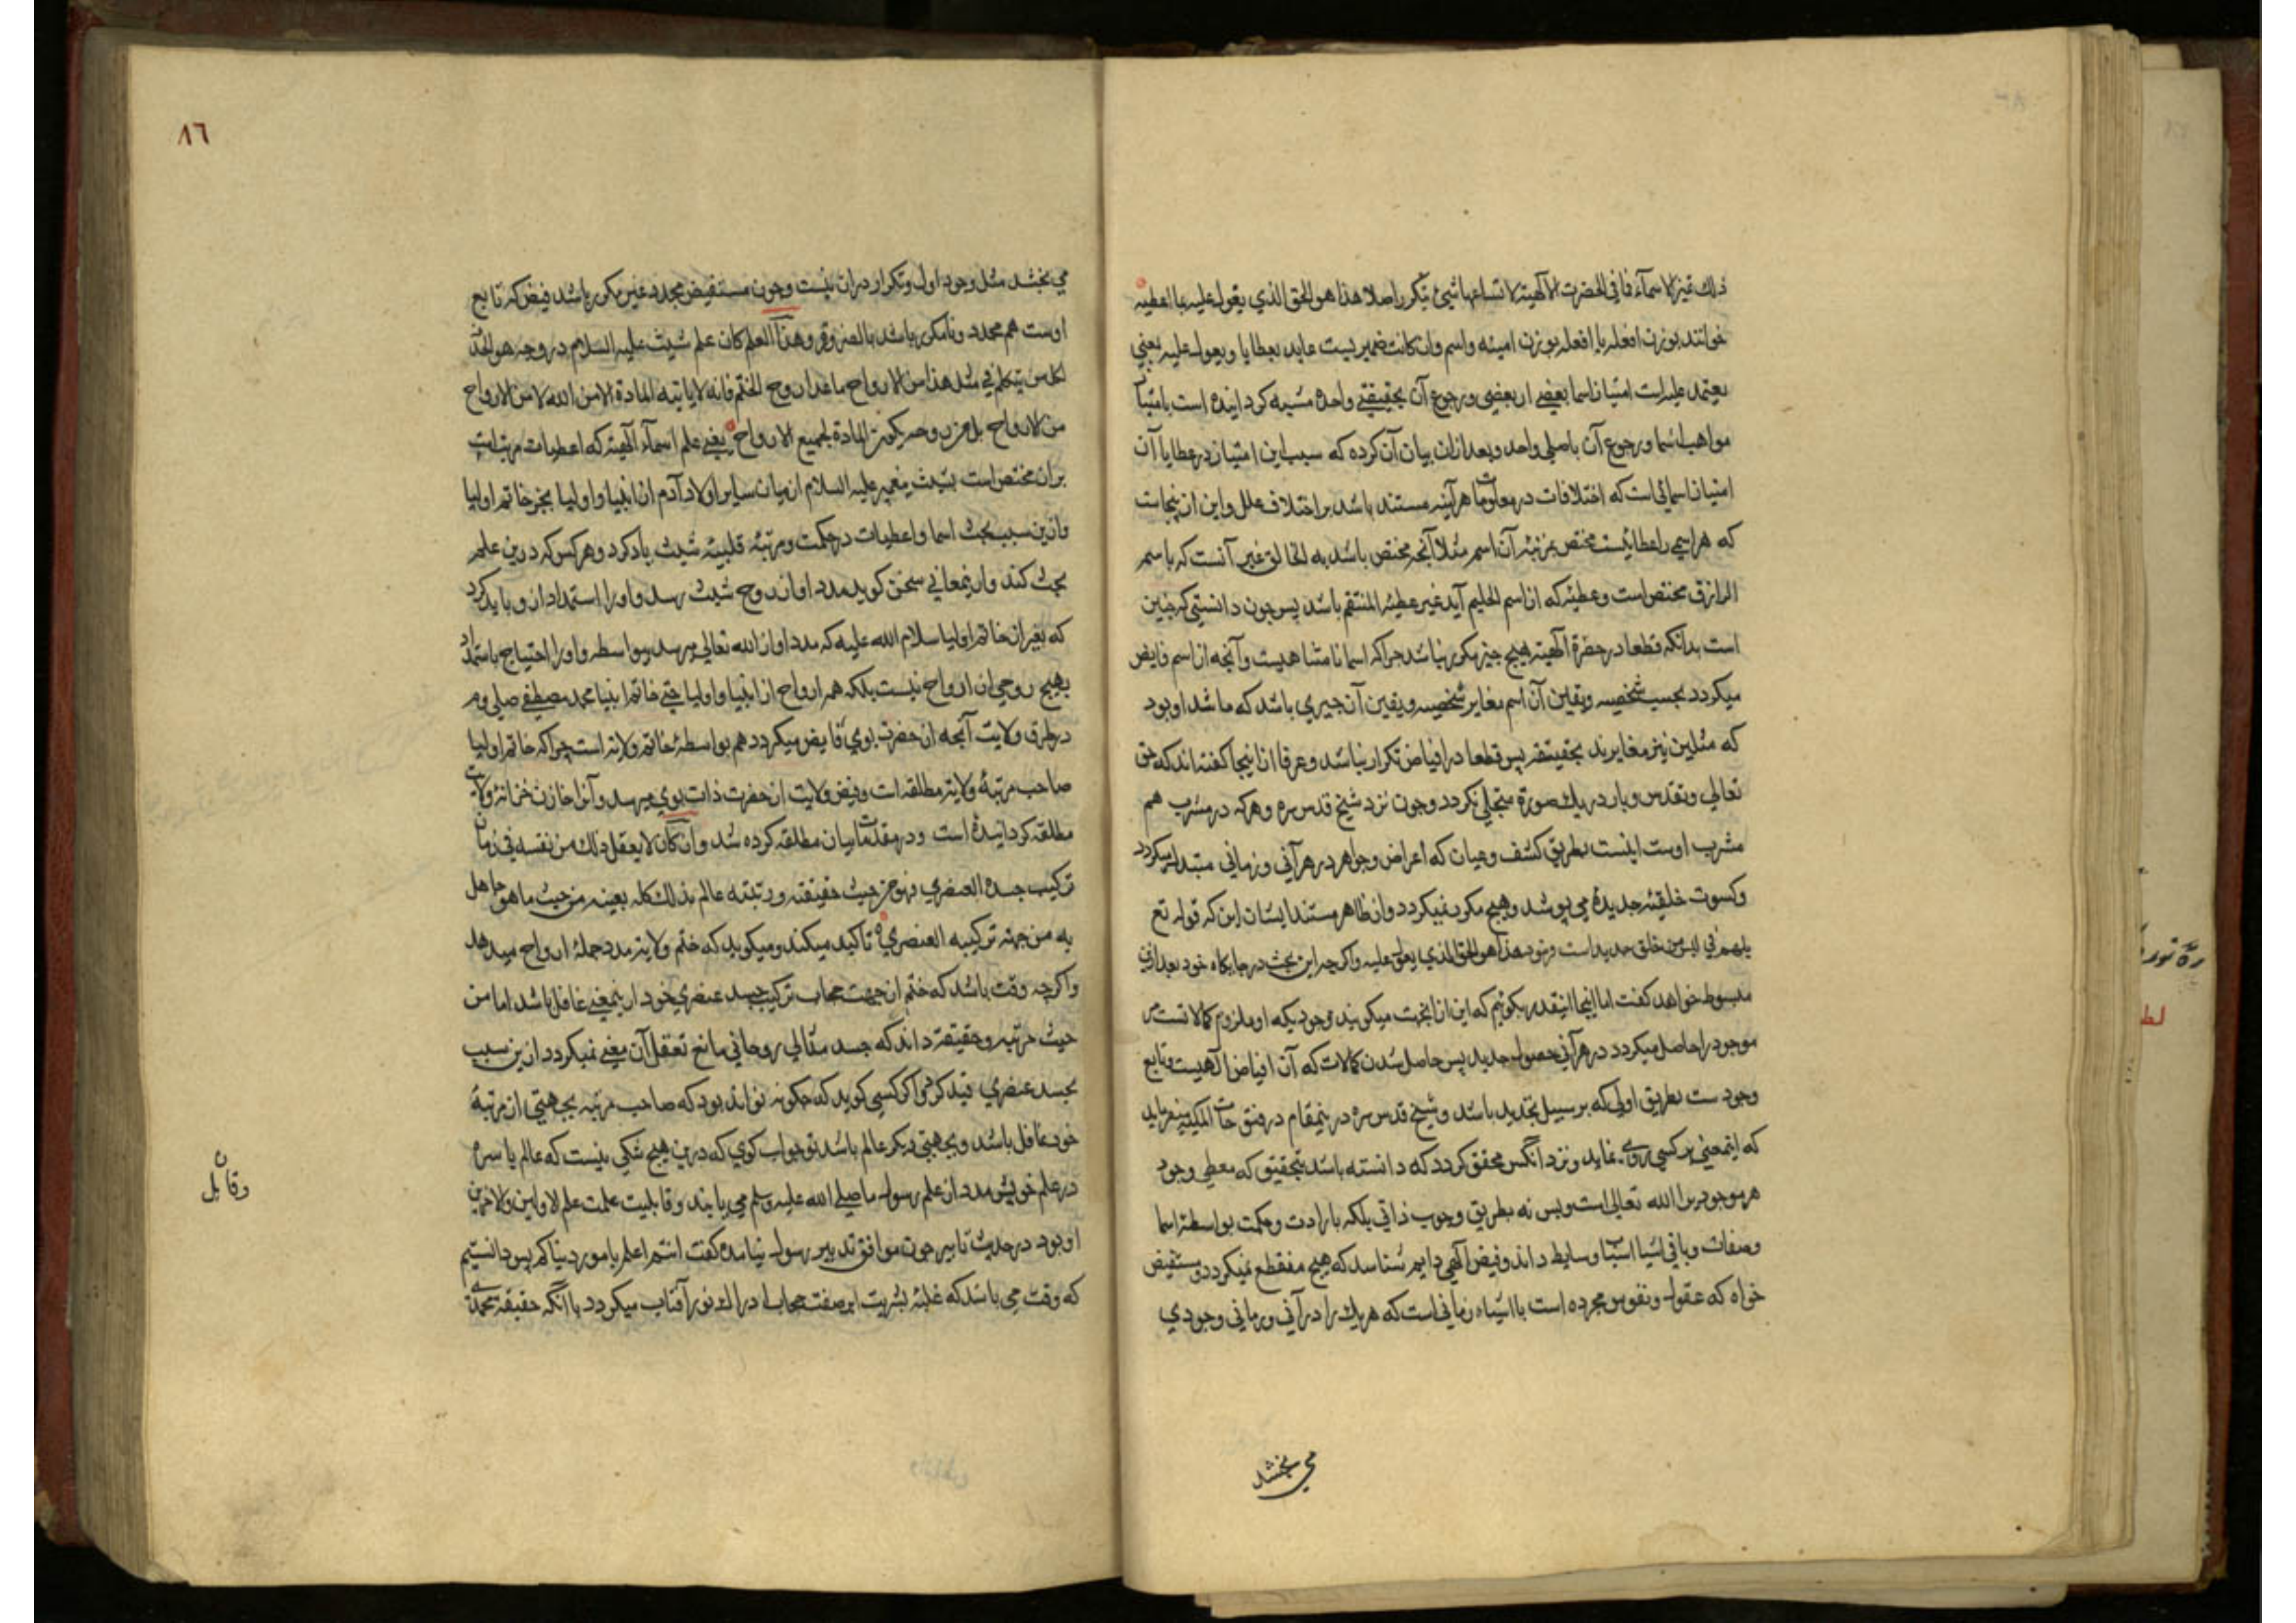 ذلك تميز الاسمآء فما في الحضرت الآلهية لاتساعها شيئ يتكرر اصلا هذا هو الحق الذي يعول عليه ما اعطيه
خوانند بوزن افعله يا افعله بوزن امینه واسم وان كانت ضمير یست عايد بعطايا ويعول عليه يعني
يعتمد عليه است امتیاز اسما بعضي از بعضي ورجوع آن بحقیقتي واحده مشبه كردانیده است بامتیاز
مواهب اسما ورجوع آن باصلي واحد وبعد ازان بیان آن كرده كه سبب این امتیاز در عطایا آن
امتیاز اسمائی است كه اختلافات در معلولات هرآینه مستند باشد بر اختلاف علل واین از اینجاست
كه هر اسمي را عطائیست مختص بمرتبه آن اسم مثلا آنچه مختص باشد به الخالق غیر آنست كه باسم
الرازق مختص است وعطیه كه از اسم الحلیم آید غیر عطیه المنتقم باشد پس چون دانستی كه چنین
است بدانكه قطعا در حضرة آلهیة هیچ چیز مكرر نباشد چرا كه اسما نامتناهیست وآنچه از اسم فایض
میكردد بحسب شخصیه ویقین آن اسم مغایر شخصیه ویقین آن چیزی باشد كه ما شد او بود
كه مثلین نیز مغایرند بحقیقته پس قطعا در افیاض تكرار نباشد وعرفا از اینجا كفته اند كه حق
تعالی وتقدس دوبار در یك صورة متجلی نكردد وچون نزد شیخ قدس سره وهركه در مشرب هم
مشرب اوست اینست بطریق كشف وعیان كه اعراض وجواهر در هر آنی وزمانی متبدل میكردد
وكسوت خلقیه جدیده می پوشد وهیچ مكرر نمیكردد واز ظاهر مستند ایشان این كه قوله تع
بل هم في لبس من خلق جدید است وبود هذا هو الحق الذي یعول علیه واكرچه این بحث در جایكاه خود بعد ازین
مبسوط خواهد كفت اما اینجا اینقدر بكوئیم كه این از انجهت میكویند موجودیكه او ملزوم كمالاتست مر
موجود را حاصل میكردد در هر آنی حصول جدید پس حاصل شدن كمالات كه آن افیاض آلهیست وتابع
وجود ست بطریق اولی كه بر سبیل تجدید باشد وشیخ قدس سره در ینمقام در فتوحات المكیه میفرماید
كه اینمعنی بر كسی روی نماید ونزد آنكس محقق كردد كه دانسته باشد بتحقیق كه معطی وجود
هر موجودیرا الله تعالی است وبس نه بطریق وجوب ذاتی بلكه بارادت وحكمت بواسطه اسما
وصفات وباقی اشیا اسبا وسایط داند وفیض آلهی دایم شناسد كه هیچ منقطع نمیكردد ومستفیض
خواه كه عقول ونفوس مجرده است با اشیاء زمانی است كه هر یك را در آنی وزمانی وجودی
می بخشد
٨٦
می بخشد مثل وجود اول وتكرار دران نیست وچون مستفیض مجدد غیر مكرر باشد فیض كه تابع
اوست هم مجدد ونامكرر باشد بالضروة وهذا العلم كان علم شیث علیه السلام وروحه هو الممد
لكل من یتكلم في مثل هذا من الارواح ما عدا روح الختم فانه لا یاتیه المادة الا من الله لا من الارواح
من الارواح بل من روحه یكون المادة لجمیع الارواح یعنی علم اسمآء آلهیة كه اعطیات مرتب است
بران مختص است بشیث پیغمبر علیه السلام از میان سایر اولاد آدم از انبیا واولیا بجز خاتم اولیا
وازین سبب بحث اسما واعطیات در حكمت ومرتبهٔ قلبیهٔ شیث یاد كرد وهركس كه درین علم
بحث كند وازینمعانی سخن كوید مدد او از روح شیث رسد واورا استمداد ازو باید كرد
كه بغیر از خاتم اولیا سلام الله علیه كه مدد او از الله تعالی میرسد بیواسطه واورا احتیاج باستمداد
بهیچ روحی از ارواح نیست بلكه همه ارواح از انبیا واولیا حتی خاتم انبیا محمد مصطفی صلی وم
در طرف ولایت آنچه از حضرت بوی فایض میكردد هم بواسطهٔ خاتم ولایة است چرا كه خاتم اولیا
صاحب مرتبهٔ ولایة مطلقه است وفیض ولایت از حضرت ذات بوی میرسد وآنرا خازن خزانهٔ ولایت
مطلقه كردانیده است ودر مقدمات بیان مطلقه كرده شد وان كان لا یعقل ذلك من نفسه في زمان
تركیب جسده العنصري فهو من حیث حقیقته ورتبته عالم بذلك كله بعینه من حیث ما هو جاهل
به من جهة تركیبه العنصري تاكید میكند ومیكوید كه ختم ولایة مدد جملهٔ ارواح میدهد
واكرچه وقت باشد كه ختم از جهت حجاب تركیب جسد عنصری خود ازینمعنی غافل باشد اما من
حیث مرتبه وحقیقة داند كه جسد مثالی روحانی مانع تعقل آن معنی نمیكردد ازین سبب
بجسد عنصری قید كرد واكر كسی كوید كه چكونه تواند بود كه صاحب مرتبه بجهتی از مرتبهٔ
خود غافل باشد وبجهتی دیكر عالم باشد تو جواب كوی كه درین هیچ شكی نیست كه عالم باسره
در علم خویش مدد از علم رسول ما صلی الله علیه وسلم می یابند وقابلیت علمت علم الاولین والاخرین
او بود در حدیث تابیر چون موافق تدبیر رسول نیامده كفت انتم اعلم بامور دنیاكم پس دانستیم
كه وقت می باشد كه غلبهٔ بشریت ابر صفت حجاب ادراك نور آفتاب میكردد با آنكه حقیقة محمدی
وقابل